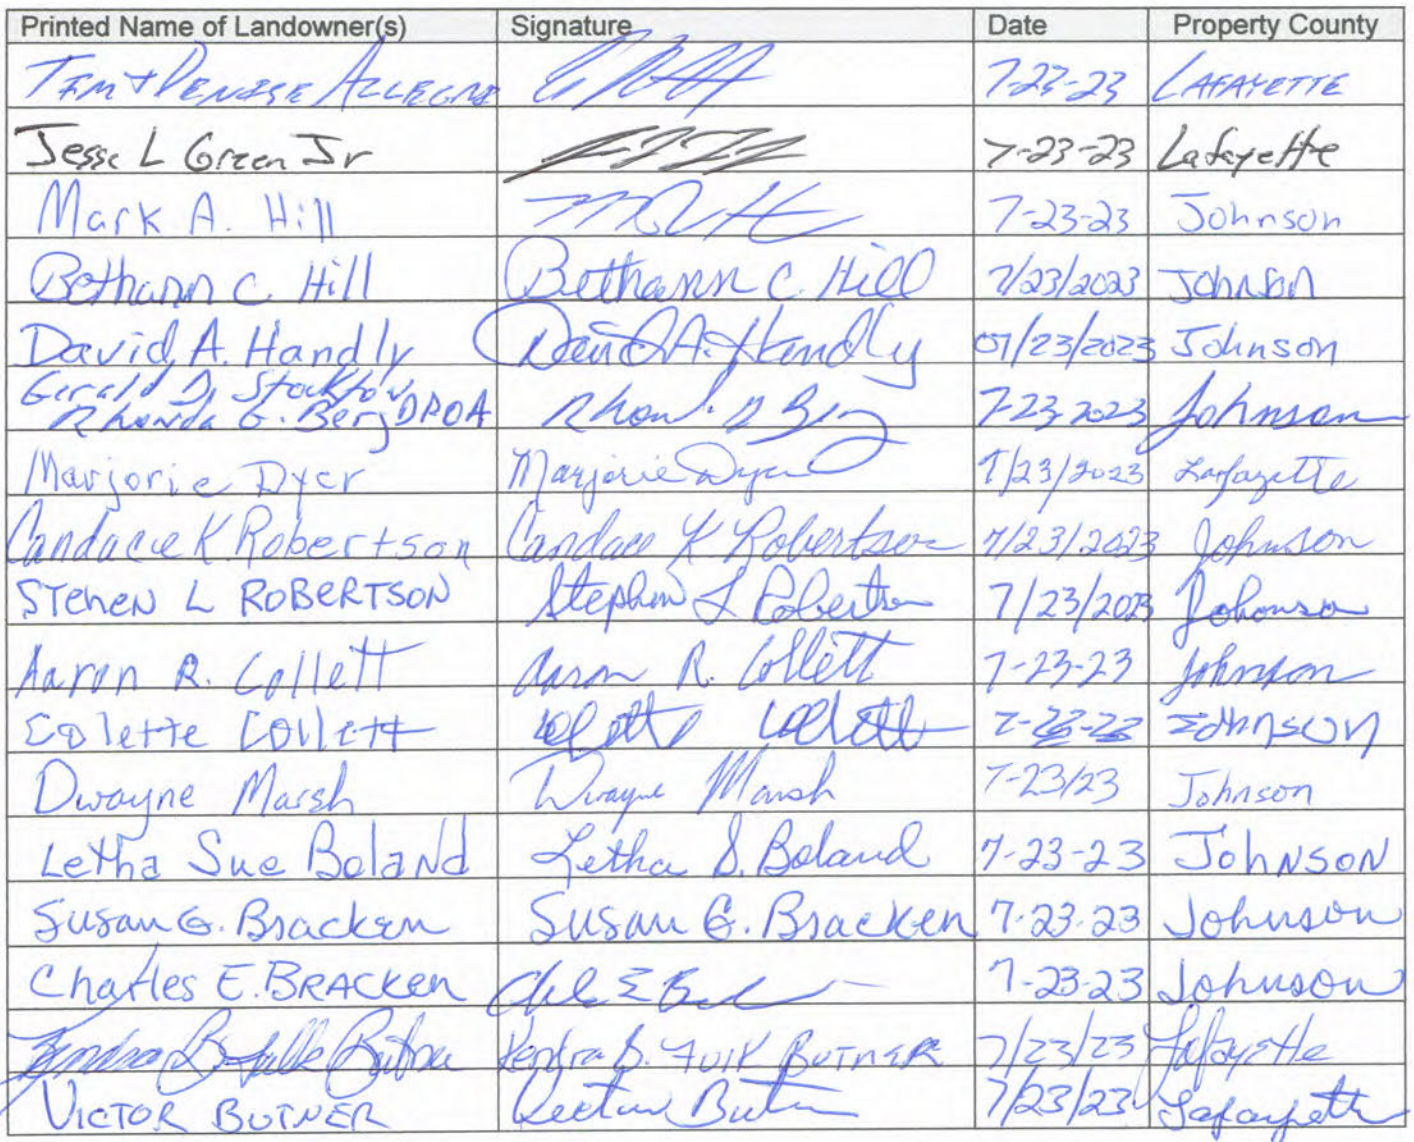 Printed Name of Landowner(s) Signature Date Property County
Tim + Denise Allegri 7-23-23 Lafayette
Jesse L Green Jr 7-23-23 Lafayette
Mark A. Hill 7-23-23 Johnson
Bethann C. Hill Bethann C. Hill 7/23/2023 Johnson
David A. Handly David A. Handly 07/23/2023 Johnson
Gerald D. Stockton
Rhonda G. Berg DPOA Rhonda Berg 7-23-2023 Johnson
Marjorie Dyer Marjorie Dyer 7/23/2023 Lafayette
Candace K Robertson Candace K. Robertson 7/23/2023 Johnson
STEHEN L ROBERTSON Stephen L Robertson 7/23/2023 Johonson
Aaron R. Collett Aaron R. Collett 7-23-23 Johnson
Colette Collett Colette Collett 7-23-23 Johnson
Dwayne Marsh Dwayne Marsh 7-23/23 Johnson
Letha Sue Boland Letha S. Boland 7-23-23 Johnson
Susan G. Bracken Susan G. Bracken 7-23-23 Johnson
Charles E. Bracken 7-23-23 Johnson
Kendra B. Fulk Butner Kendra B. Fulk Butner 7/23/23 Lafayette
Victor Butner Victor Butner 7/23/23 Lafayette